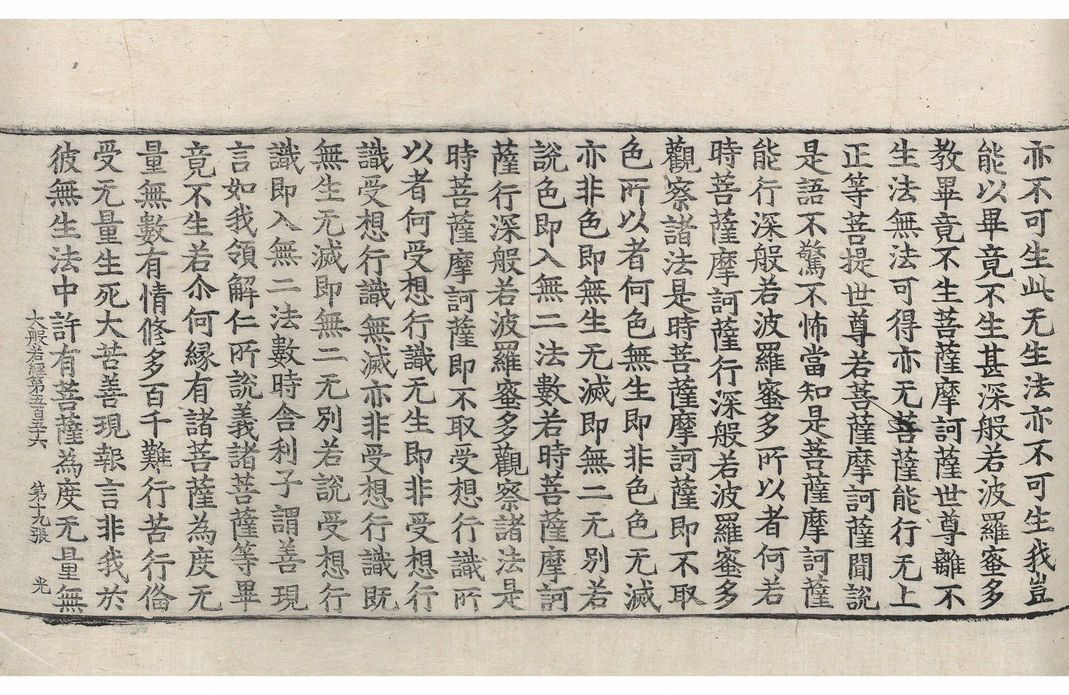 亦不可生此无生法亦不可生我豈
能以畢竟不生甚深般若波羅蜜多
教畢竟不生菩薩摩訶薩世尊離不
生法無法可得亦无菩薩能行无上
正等菩提世尊若菩薩摩訶薩聞說
是語不驚不怖當知是菩薩摩訶薩
能行深般若波羅蜜多所以者何若
時菩薩摩訶薩行深般若波羅蜜多
觀察諸法是時菩薩摩訶薩即不取
色所以者何色無生即非色色无滅
亦非色即無生无滅即無二无別若
說色即入無二法數若時菩薩摩訶
薩行深般若波羅蜜多觀察諸法是
時菩薩摩訶薩即不取受想行識所
以者何受想行識无生即非受想行
識受想行識無滅亦非受想行識既
無生无滅即無二无別若說受想行
識即入無二法數時舍利子謂善現
言如我領解仁所說義諸菩薩等畢
竟不生若尒何縁有諸菩薩為度无
量無數有情修多百千難行苦行俻
受无量生死大苦善現報言非我於
彼無生法中許有菩薩為度无量無
大般若經第五百五十六 第十九張 光